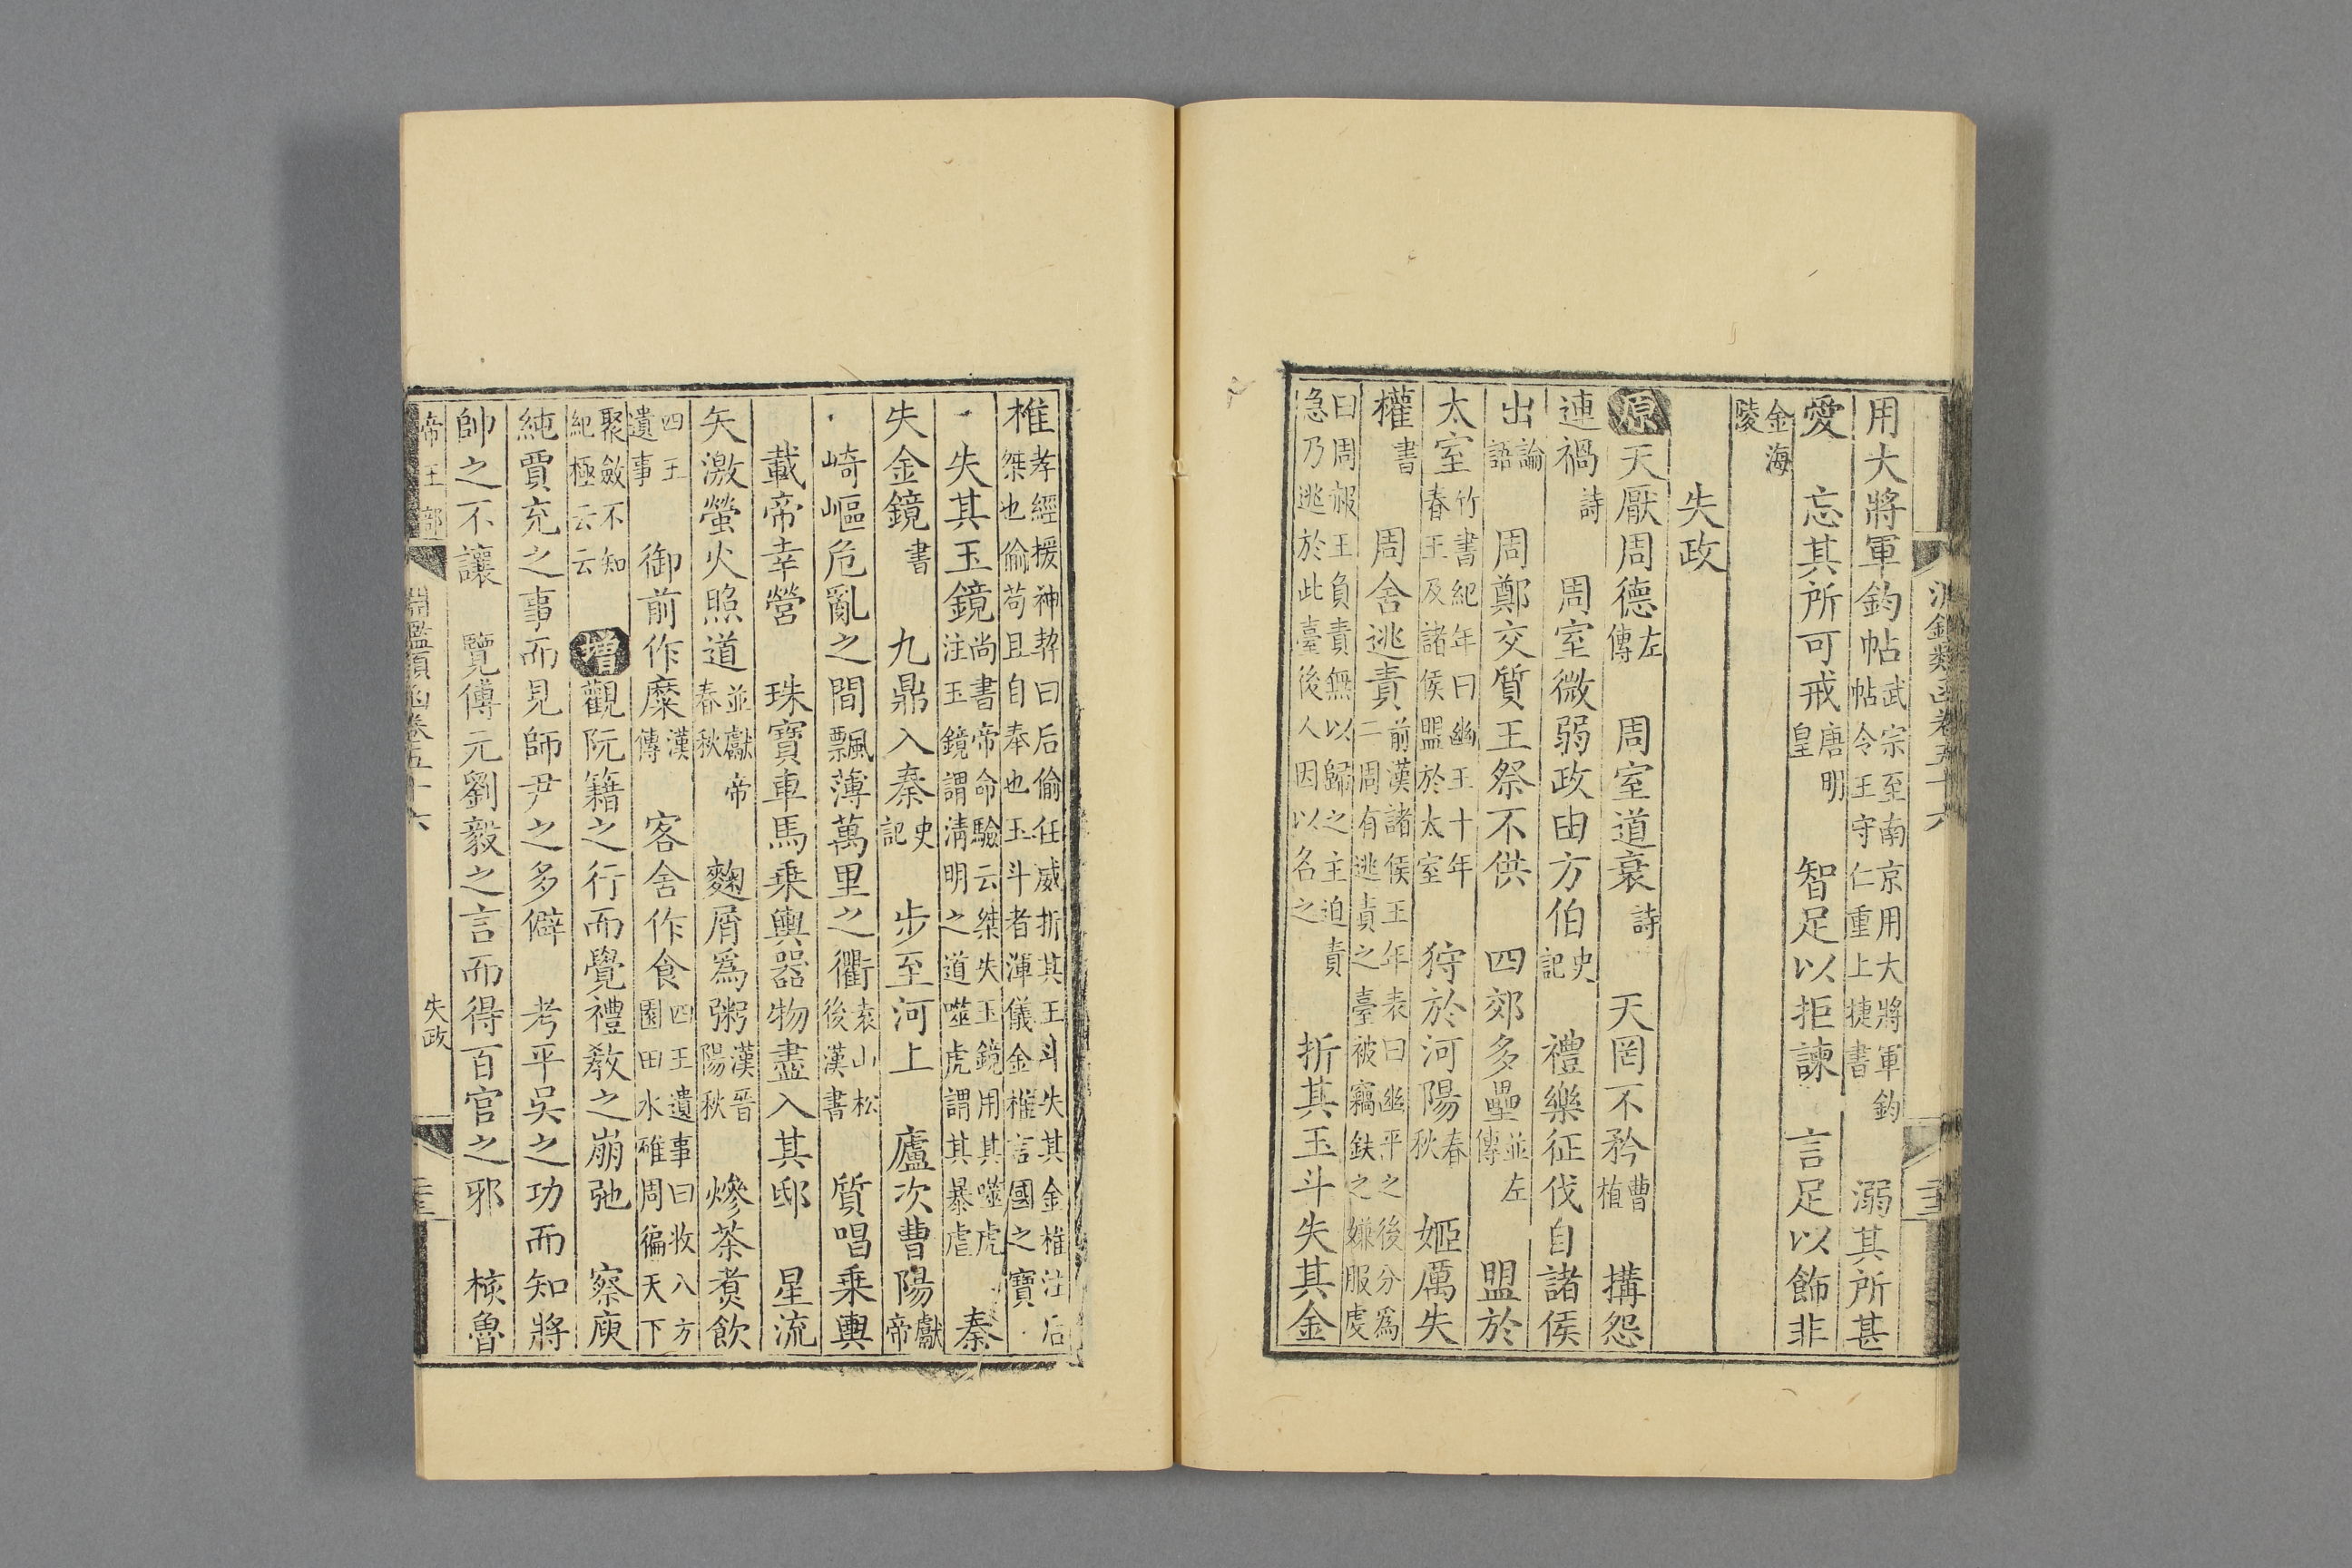 淵鑑類函卷五十六
用大將軍鈞帖武宗至南京用大將軍鈞帖令王守仁重上捷書 溺其所甚
愛 忘其所可戒唐明皇 智足以拒諫 言足以飾非
金海陵
失政
原天厭周德左傳 周室道衰詩 天罔不矜曹植 搆怨
連禍詩 周室微弱政由方伯史記 禮樂征伐自諸侯
出論語 周鄭交質王祭不供 四郊多壘並左傳 盟於
太室竹書紀年曰幽王十年春王及諸侯盟於太室 狩於河陽春秋 姬厲失
權書 周舍逃責前漢諸侯王年表曰幽平之後分爲二周有逃責之臺被竊鈇之嫌服虔
曰周赧王負責無以歸之主迫責急乃逃於此臺後人因以名之 折其玉斗失其金
椎孝經援神契曰后偷任威折其玉斗失其金椎注后桀也偷苟且自奉也玉斗者渾儀金椎言國之寶
失其玉鏡尚書帝命驗云桀失玉鏡用其噬虎注玉鏡謂清明之道噬虎謂其暴虐 秦
失金鏡書 九鼎入秦史記 步至河上 廬次曹陽獻帝
崎嶇危亂之間飄薄萬里之衢袁山松後漢書 質唱乗輿
載帝幸營 珠寶車馬乗輿器物盡入其邸 星流
矢激螢火照道並獻帝春秋 麴屑爲粥漢晉陽秋 茶煮飲
四王遺事 御前作糜漢傳 客舍作食四王遺事曰收八方園田水碓周徧天下
聚斂不知紀極云云 增觀阮籍之行而覺禮教之崩弛 察庾
純賈充之事而見師尹之多僻 考平吳之功而知將
帥之不讓 覽傅元劉毅之言而得百官之邪 核魯
帝王部 淵鑑類函卷五十六 失政